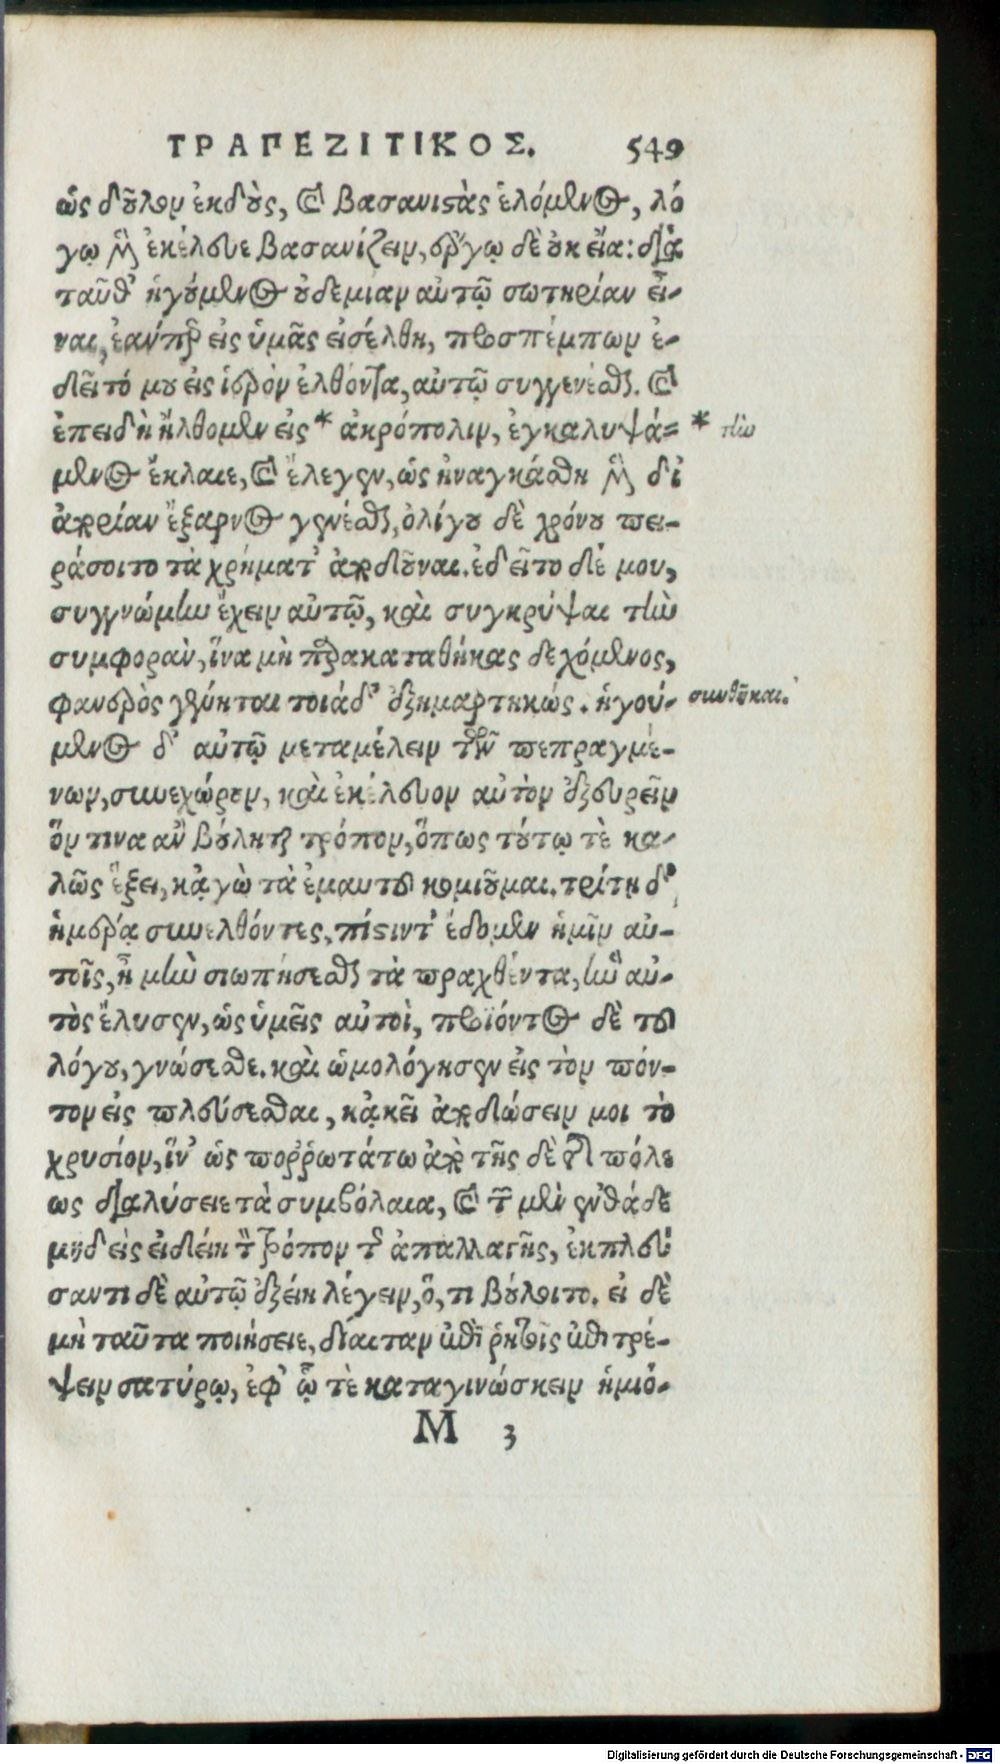 ΤΡΑΠΕΖΙΤΙΚΟΣ. 549
ὡς δοῦλον ἐκδοὺς, καὶ βασανιστὰς ἑλόμενος, λό
γῳ μὲν ἐκέλευε βασανίζειν, ἔργῳ δὲ οὐκ εἴα: διὰ
ταῦθ' ἡγούμενος οὐδεμίαν αὐτῷ σωτηρίαν εἶ-
ναι, ἐάνπερ εἰς ὑμᾶς εἰσέλθῃ, προσπέμπων ἐ-
δεῖτό μου εἰς ἱερὸν ἐλθόντα, αὐτῷ συγγενέσθαι. καὶ
ἐπειδὴ ἤλθομεν εἰς * ἀκρόπολιν, ἐγκαλυψά=
* τὴν
μενος ἔκλαιε, καὶ ἔλεγεν, ὡς ἠναγκάσθη μὲν δι'
ἀπορίαν ἔξαρνος γενέσθαι, ὀλίγου δὲ χρόνου πει-
ράσοιτο τὰ χρήματ' ἀποδοῦναι. ἐδεῖτο δέ μου,
συγγνώμην ἔχειν αὐτῷ, καὶ συγκρύψαι τὴν
συμφορὰν, ἵνα μὴ παρακαταθήκας δεχόμενος,
φανερὸς γένηται τοιάδ' ἐξημαρτηκώς. ἡγού-
συνθῆκαι.
μενος δ' αὐτῷ μεταμέλειν τῶν πεπραγμέ-
νων, συνεχώρουν, καὶ ἐκέλευον αὐτὸν ἐξευρεῖν
ὅν τινα ἂν βούληται τρόπον, ὅπως τούτῳ τὲ κα-
λῶς ἕξει, κᾀγὼ τὰ ἐμαυτοῦ κομιοῦμαι. τρίτῃ δ'
ἡμέρᾳ συνελθόντες, πίστιντ' ἔδομεν ἡμῖν αὐ-
τοῖς, ἦ μὴν σιωπήσεσθαι τὰ πραχθέντα, ἣν αὐ-
τὸς ἔλυσεν, ὡς ὑμεῖς αὐτοὶ, προϊόντος δὲ τοῦ
λόγου, γνώσεσθε. καὶ ὡμολόγησεν εἰς τὸν πόν-
τον εἰς πλεύσεσθαι, κᾀκεῖ ἀποδώσειν μοι τὸ
χρυσίον, ἵν' ὡς πορῤῥωτάτω ἀπὸ τῆς δὲ τῆς πόλε
ως διαλύσειε τὰ συμβόλαια, καὶ τῶν μὲν ἐνθάδε
μηδεὶς εἰδείη τὸν τρόπον τῆς ἀπαλλαγῆς, ἐκπλεύ
σαντι δὲ αὐτῷ ἐξείη λέγειν, ὅ, τι βούλοιτο. εἰ δὲ
μὴ ταῦτα ποιήσειε, δίαιταν ἐπὶ ῥητοῖς ἐπιτρέ-
ψειν σατύρῳ, ἐφ' ᾧ τὲ καταγινώσκειν ἡμιό-
M 3
Digitalisierung gefördert durch die Deutsche Forschungsgemeinschaft - DFG